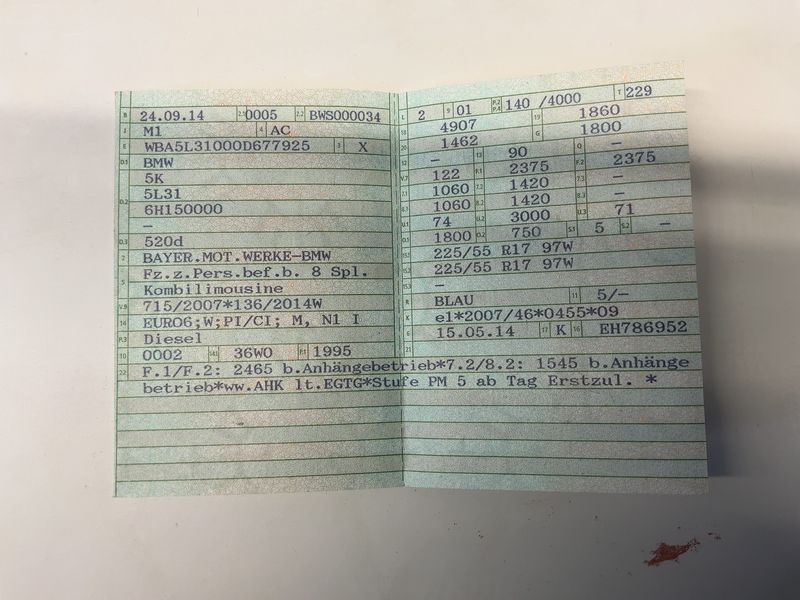 B 24.09.14 2.1 0005 2.2 BWS000034
J M1 4 AC
E WBA5L31000D677925 3 X
D.1 BMW
5K
D.2 5L31
6H150000
–
D.3 520d
2 BAYER.MOT.WERKE-BMW
5 Fz.z.Pers.bef.b. 8 Spl.
Kombilimousine
V.9 715/2007*136/2014W
14 EURO6;W;PI/CI; M, N1 I
P.3 Diesel
10 0002 14.1 36W0 P.1 1995
22 F.1/F.2: 2465 b.Anhängebetrieb*7.2/8.2: 1545 b.Anhänge
betrieb*ww.AHK lt.EGTG*Stufe PM 5 ab Tag Erstzul. *
L 2 9 01 P.2 P.4 140 /4000 T 229
18 4907 19 1860
20 1462 G 1800
12 – 13 90 Q –
V.7 122 F.1 2375 F.2 2375
7.1 1060 7.2 1420 7.3 –
8.1 1060 8.2 1420 8.3 –
U.1 74 U.2 3000 U.3 71
O.1 1800 O.2 750 S.1 5 S.2 –
15.1 225/55 R17 97W
15.2 225/55 R17 97W
15.3 –
R BLAU 11 5/–
K e1*2007/46*0455*09
6 15.05.14 17 K 16 EH786952
21